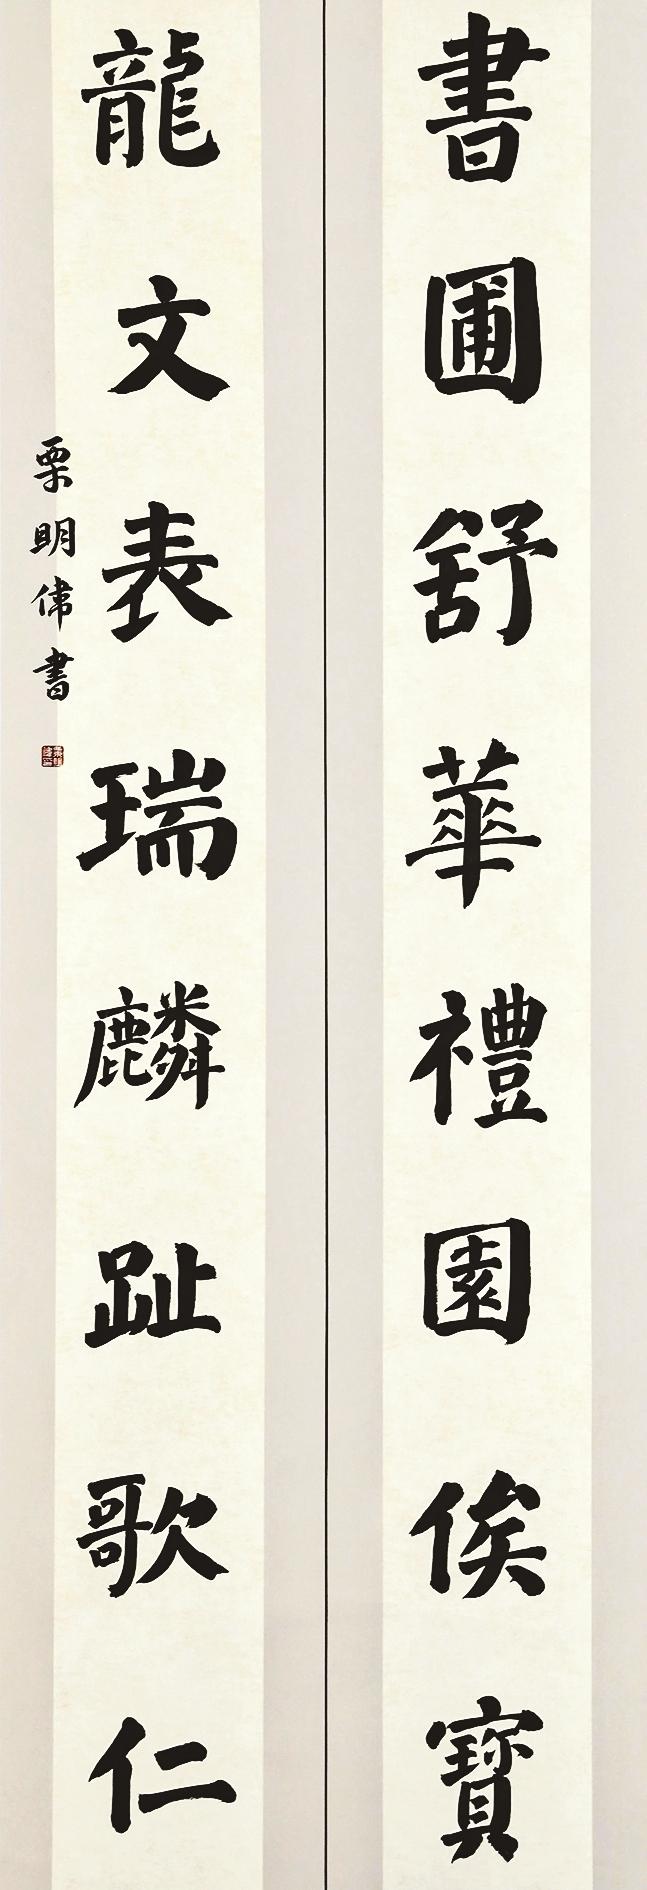 書圃舒華禮園俟寶
龍文表瑞麟趾歌仁
栗明偉書